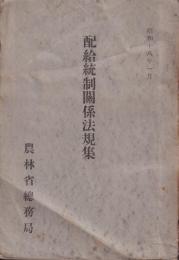 昭和十八年一月
配給統制關係法規集
農林省總務局